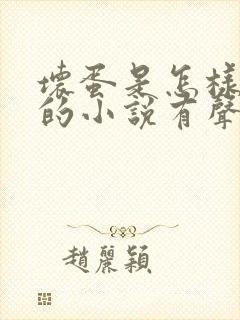 壞蛋是怎樣
的小說有聲
趙麗穎